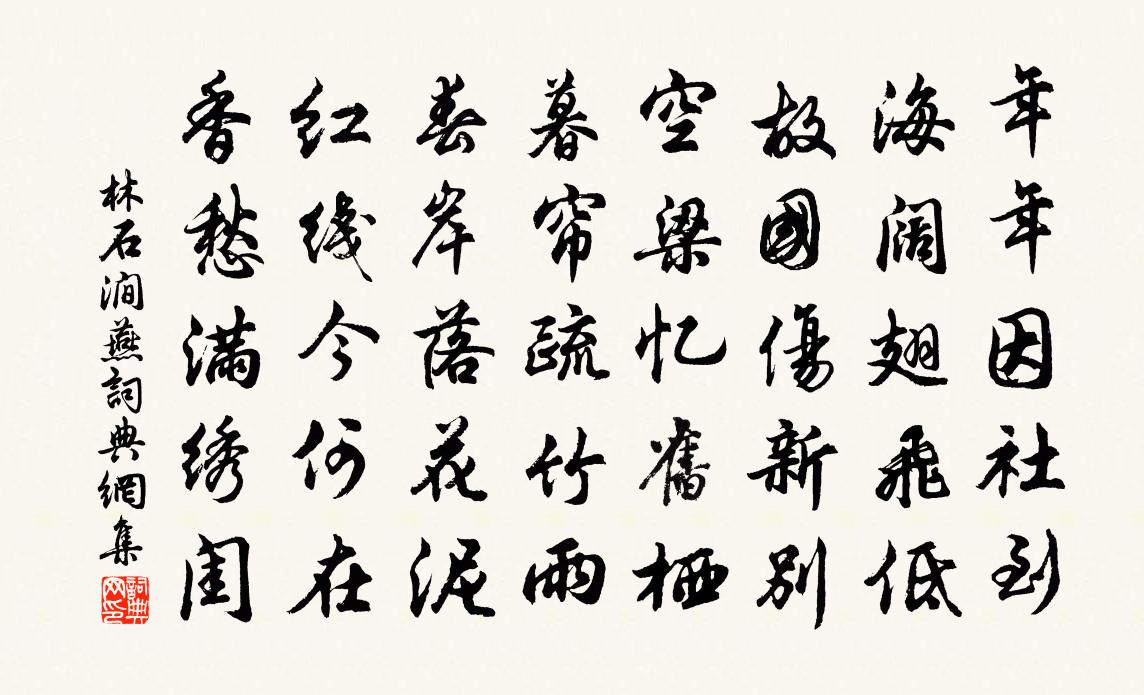 年年因社到
海阔翅飛低
故國傷新别
空梁忆舊栖
暮帘疏竹雨
春岸落花泥
红线今何在
香愁满绣闺
林石澗燕詞典網集
詞典網印